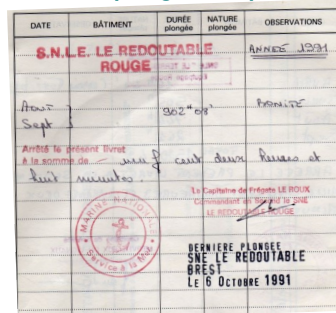 DATE BÂTIMENT DURÉE plongée NATURE plongée OBSERVATIONS
S.N.L.E. LE REDOUTABLE ANNEÉ 1991
ROUGE
Aout
Sept 902 H 08'
Arrêté le présent livret
à la somme de — neuf cent deux heures et
huit minutes.
Le Capitaine de Frégate LE ROUX
Commandant en Second le SNLE
LE REDOUTABLE ROUGE
MARINE NATIONALE
Service à la Mer
DERNIERE PLONGEE
SNE LE REDOUTABLE
BREST
LE 6 OCTOBRE 1991